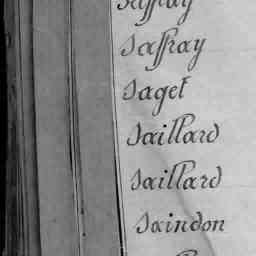 Saffray
Saget
Saillard
Saillard
Saindon